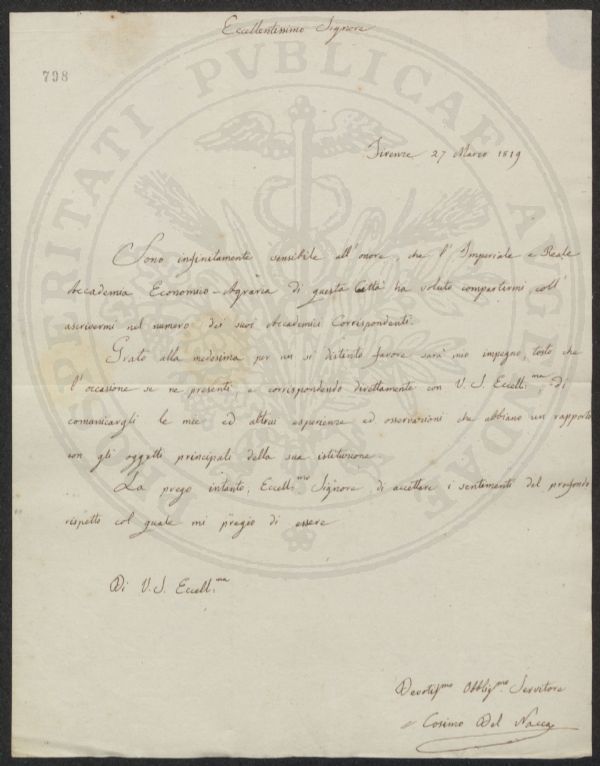 Eccellentissimo Signore
798
PROSPERITATI PVBLICAE AVGENDAE
Firenze 27 Marzo 1819
Sono infinitamente sensibile all'onore, che l'Imperiale e Reale
Accademia Economico-Agraria di questa Città ha voluto compartirmi coll'
ascrivermi nel numero dei suoi Accademici Corrispondenti.
Grato alla medesima per un sì distinto favore sarà mio impegno, tosto che
l'occasione se ne presenti, e corrispondendo direttamente con V. S. Eccell:ma, di
comunicargli le mie ed altrui esperienze ed osservazioni che abbiano un rapporto
con gli oggetti principali della sua istituzione.
La prego intanto, Eccell:mo Signore di accettare i sentimenti del profondo
rispetto col quale mi pregio di essere
Di V. S. Eccell:ma
Devotis:mo Obblig:mo Servitore
Cosimo Del Nacca